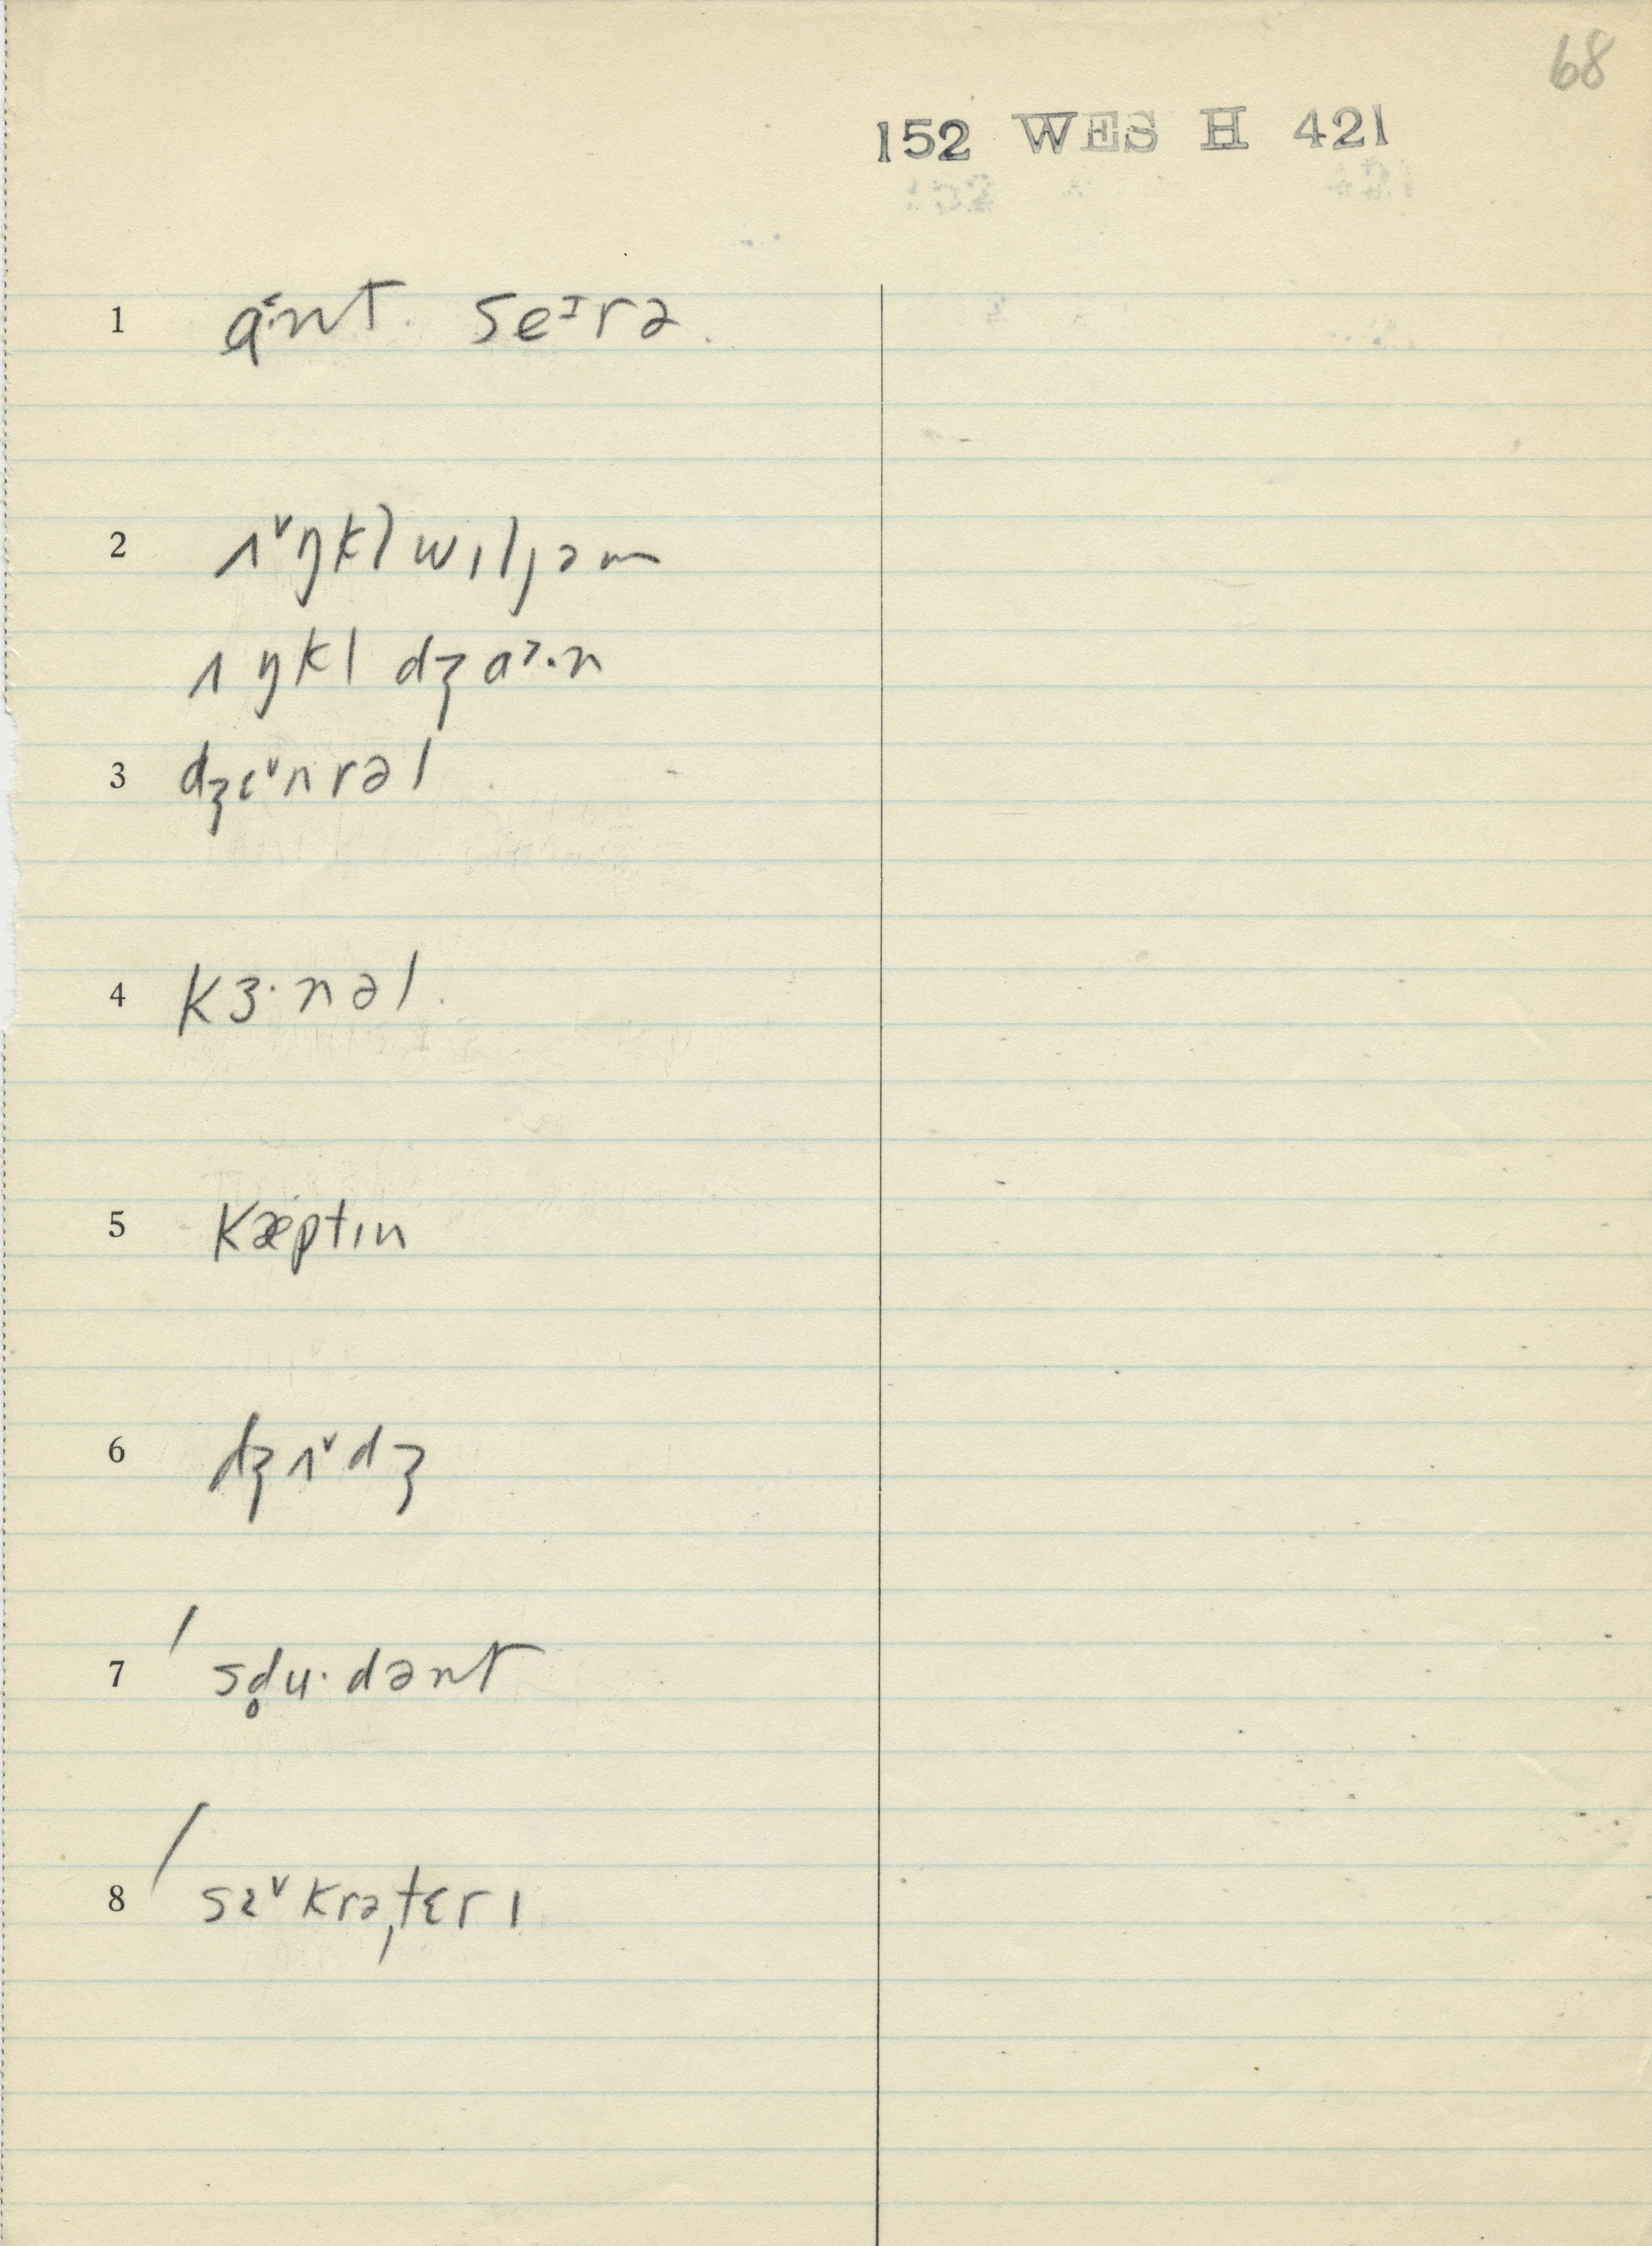 68
152 WES H 421
1 a˂·nt seᶦrə
2 ʌ˅ŋkl wɪljəm
ʌŋkl dʒɑ˃·n
3 dʒɛ˅nrəl
4 kɜ·nəl
5 kæptɪn
6 dʒʌ˅dʒ
7 / sd̥u·dənt
8 / sɛ˅krəˌtɛrɪ